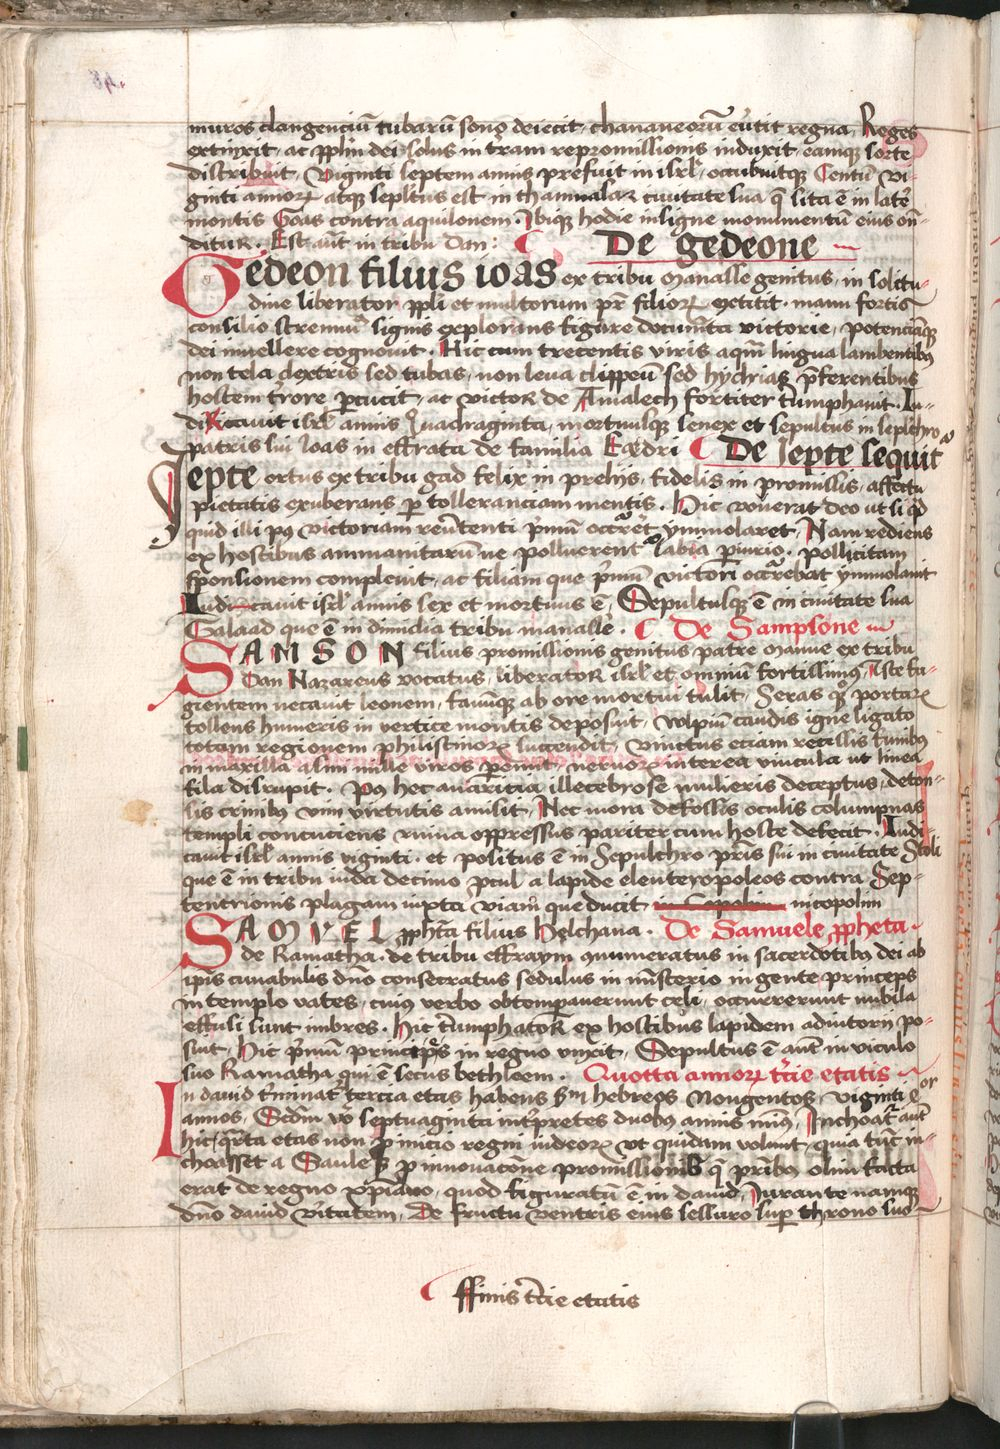 muros clangenciū tubarū sono deiecit, chananeorū eūtit regna, Reges
extinxit, ac pplm dei solus in tram repromissionis induxit, eamqꝫ sorte
distribuit, Viginti septem annis prefuit in isrl, occubuitqꝫ Centū vi-
ginti annoꝝ, atqꝫ sepltus est in thamnasar ciuitate sua q̄ sita ē in late̅
montis Goas contra aquilonem. Ibiqꝫ hodie insigne monumentū eius on̄-
ditur. Est aūt in tribu dan: De gedeone
Gedeon filius ioas ex tribu Manasse genitus, in solitu-
dine liberator ppli et multorum pr̄ filioꝝ extitit, manu fortis
consilio strennuꝰ signis explorans figure documt̄a victorie, potenciāqꝫ
dei in vellere cognouit. Hic cum trecentis viris aqm̄ lingua lambentibꝰ
non tela dextris sed tubas, non leua clippeū sed hydrias p̄ferentibus
hostem tr̄rore ꝑcucit, ac victor de Amalech fortiter tr̄umphauit. Iu-
dicauit isrl annis Quadraginta, mortuusqꝫ senex et sepultus in seplchro
patris sui Ioas in effrata de familia Eȝdri De Iepte sequit᷑
Iepte ortus ex tribu gad felix in prelijs, fidelis in promissis, affectu
pietatis exuberans ꝑ tolleranciam mentis. Hic vouerat deo ut si qͥd
quid illi pꝰ victoriam reūtenti pͥmū occͬret ymmolaret, Nam rediens
ex hostibus ammanitarū ne polluerent᷑ labia ꝑiurio, pollicitam
sponsionem compleuit, ac filiam que pͥmū victori occͬrebat ymmolauit
Iudicauit isrl annis sex et mortuus ē, Sepultusqꝫ ē in ciuitate sua
Galaad que ē in dimidia tribu manasse. De Sampsone
SAMSON filius promissionis genitus patre Manue ex tribu
Dan Nazareus vocatus, liberator isrl et omniū fortissimus, Iste fu-
gientem necauit leonem, fauūqꝫ ab ore mortui tulit, Seras qͦꝫ portaꝝ
tollens humeris in vertice montis deposuit, wlpiū caudis igne ligato
totam regionem philistinoꝝ succendit, vinctus eciam recissis funibꝰ
in maxilla asini mille viros ꝑemit, neruoꝝ interea vincula ut linea
fila disrupit. Pꝰ hec auaricia illecebrose mulieris deceptus, deton-
sis crinibꝰ vim virtutis amisit, Nec mora defossis oculis columpnas
templi concuciens ruina oppressus pariter cum hoste defecit. Iudi-
cauit isrl annis viginti, et positus ē in Sepulchro pr̄is sui in ciuitate Stoli
que ē in tribu iuda decimo ꝓcul a lapide eleuteropoleos contra Sep-
tentrionis plagam iuxta viam que ducit in Copolim nicopolim
SAMVEL ꝓphta filius Helchana. De Samuele ꝓpheta
de Ramatha de tribu effraym annumeratus in sacerdotibꝰ dei ab
ipīs cunabulis dn̄o consecratus sedulus in mīsterio in gente princeps
in templo vates, cuiꝰ verbo obtemperauerunt celi, occurrerunt nubila
effusi sunt imbres. Hic tr̄umphator ex hostibus lapidem adiutorij po-
suit, Hic pͥmū principes in regno vnxit, Sepultus ē aūt in viculo
suo Ramatha qui ē secus bethleem. Quotta annoꝝ tr̄cie etatis
In dauid tīminat᷑ tercia etas habens sm̄ hebreos Nongentos, viginti qͣtuor
annos, Scdm̄ vͦ septuaginta intp̄retes duobꝰ annis minꝰ, Inchoat᷑ aūt
hic qͣrta etas non ꝑ inicio regni iudeoꝝ vt quidam volunt, quia tūc in-
choasset a Saule, sꝫ ꝑ innouacōne promissionis q̄ pr̄ibꝰ olim facta
erat de regno xp̄iano, quod figuratū ē in dauid, Iurante namqꝫ
dn̄o dauid vitatem, De fructu ventris eius sessuro suꝑ throno suo
ffinis tr̄cie etatis